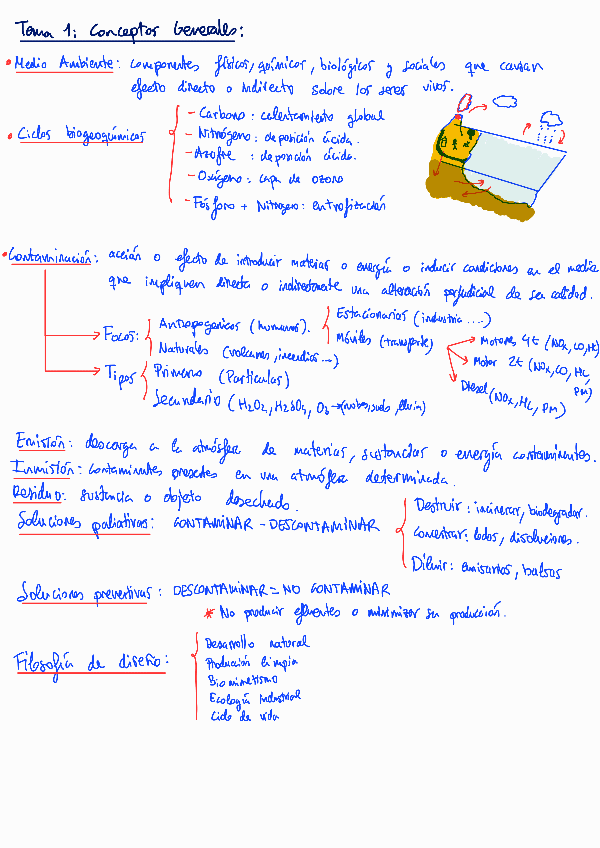 Tema 1: Conceptos Generales:
• Medio Ambiente: componentes físicos, químicos, biológicos y sociales que causan
efecto directo o indirecto sobre los seres vivos.
• Ciclos biogeoquímicos
- Carbono: calentamiento global
- Nitrógeno: deposición ácida.
- Azofre: deposición ácida.
- Oxígeno: capa de ozono
- Fósforo + Nitrogeno: eutrofización
• Contaminación: acción o efecto de introducir materias o energía o inducir condiciones en el medio
que impliquen directa o indirectamente una alteración perjudicial de su calidad.
Focos:
Antropogenicos (humanos).
Estacionarios (industria ....)
Móviles (transporte)
Motores 4t (NOx, CO, HC
Motor 2t (NOx, CO, HC, PM)
Diesel (NOx, HC, PM)
Naturales (volcanes, incendios...)
Tipos
Primerio (Partículas)
Secundario (H2O2, H2SO4, O3 →
Emisión: descarga a la atmósfera de materias, sustancias o energía contaminantes.
Inmisión: contaminantes presentes en una atmósfera determinada.
Residuo: sustancia o objeto desechado.
Soluciones paliativas: CONTAMINAR - DESCONTAMINAR
Destruir: incinerar, biodegradar.
Concentrar: lodos, disoluciones.
Diluir: emisarios, balsas
Soluciones preventivas: DESCONTAMINAR = NO CONTAMINAR
* No producir efluentes o minimizar su producción.
Filosofía de diseño:
Desarrollo natural
Producion limpia
Biomimetismo
Ecología Industrial
Ciclo de vida